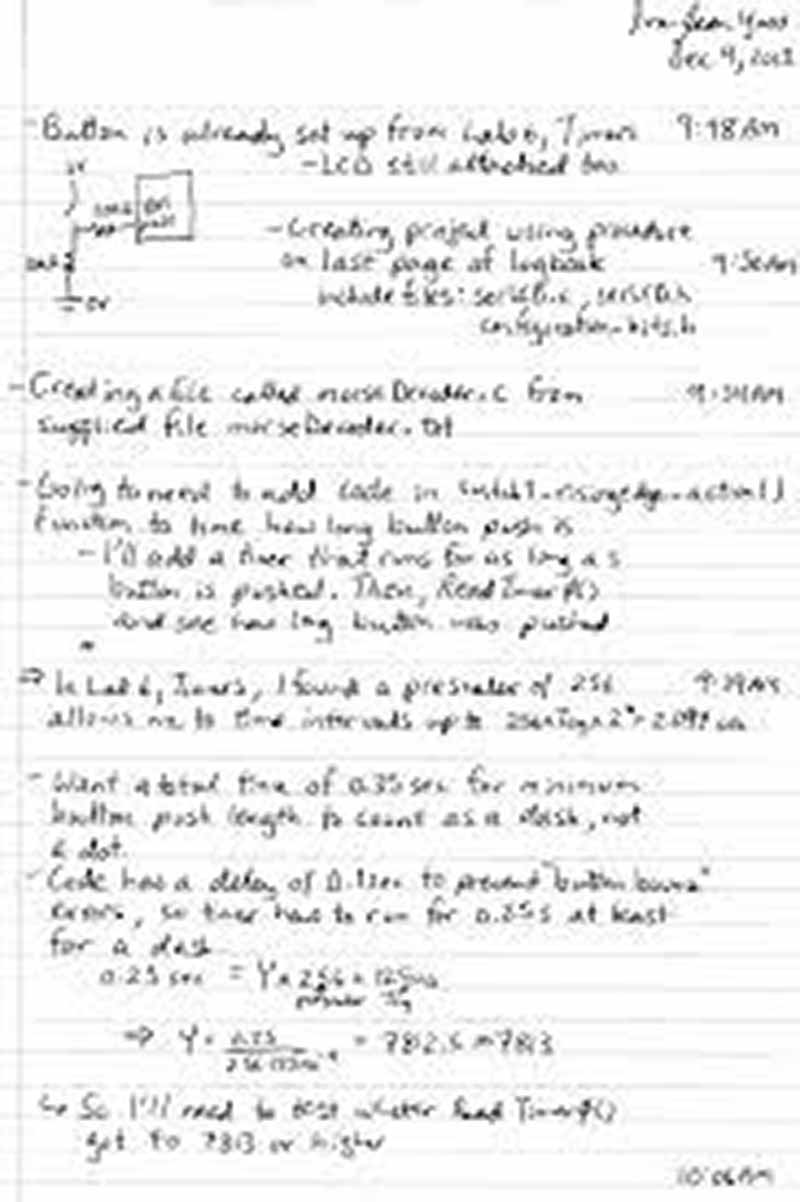 Dec 9, 2012
- Button is already set up from Lab 6, Timers 9:18 AM
- LCD still attached too
- Creating project using procedure
on last page of logbook
include files: serlcd.c, serlcd.h
configuration_bits.h
0V
- Creating a file called morseDecoder.c from
supplied file morseDecoder.txt
- Going to need to add code in switch1_risingedge_action()
function to time how long button push is
- I'll add a timer that runs for as long as
button is pushed. Then, ReadTimer0()
and see how long button was pushed
⇒ In Lab 6, Timers, I found a prescaler of 256
allows me to time intervals up to
- Want a total time of 0.35 sec for minimum
button push length to count as a dash, not
a dot.
- Code has a delay of 0.1 sec to prevent "button bounce"
errors, so timer has to run for 0.25 s at least
for a dash
0.25 sec = Y × 256 ×
prescaler
⇒ Y = = 7812.5 ≈ 7813
↳ So I'll need to test whether ReadTimer0()
got to 7813 or higher
10:06 AM